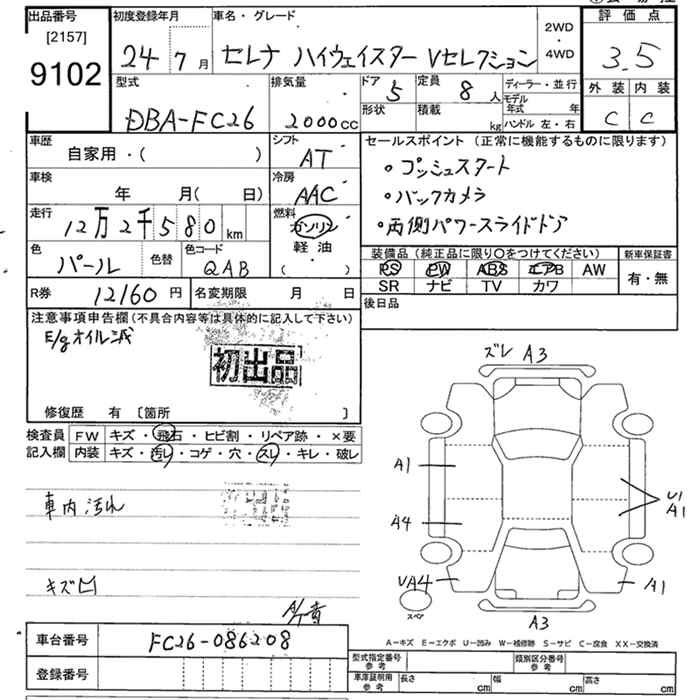 出品番号 初度登録年月 車名・グレード 2WD・4WD 評価点
[2157]
9102 24年7月 セレナ ハイウェイスター Vセレクション 3.5
型式 排気量 ドア 5 定員 8人 ディーラー・並行 外装 内装
DBA-FC26 2000cc 形状 積載 kg モデル年式 年 C C
ハンドル 左・右
車歴 自家用・( ) シフト AT セールスポイント(正常に機能するものに限ります)
車検 年 月( 日) 冷房 AAC
・プッシュスタート
・バックカメラ
・両側パワースライドドア
走行 12万2千580km 燃料 ガソリン 軽油 ( )
色 パール 色替 色コード QAB
装備品(純正品に限り〇をつけてください) 新車保証書
PS PW ABS エアB AW 有・無
SR ナビ TV カワ
R券 12160円 名変期限 月 日 後日品
注意事項申告欄(不具合内容等は具体的に記入して下さい)
E/gオイル滅
初出品
修復歴 有 [箇所 ]
検査員 FW キズ・飛石・ヒビ割・リペア跡・×要
記入欄 内装 キズ・汚レ・コゲ・穴・スレ・キレ・破レ
車内汚れ
キズ凹
ズレ A3
A1
U1
A1
A4
UA4
A1
スペア
A3
A-キズ E-エクボ U-凹み W-補修跡 S-サビ C-腐食 XX-交換済
車台番号 FC26-086208
登録番号
型式指定番号 参考 類別区分番号 参考
車庫証明用 参考 長さ cm 幅 cm 高さ cm